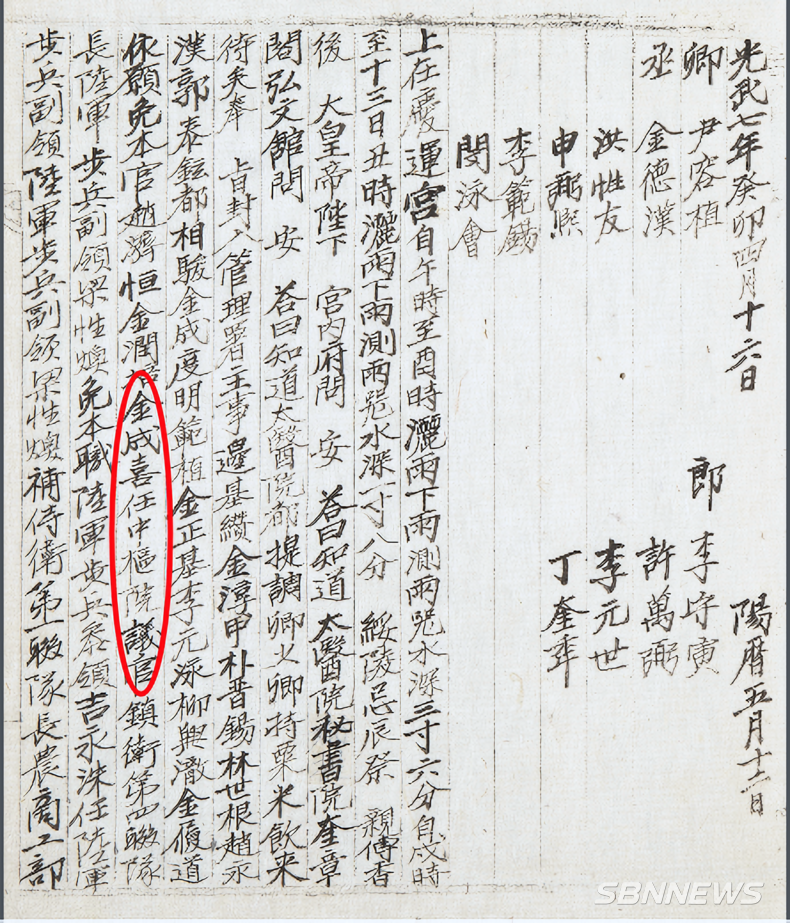 光武七年癸卯四月十六日 陽曆五月十二日
卿 尹容植 郎 李守寅
丞 金德漢 許萬弼
洪性友 李元世
申弼熙 丁奎年
李範錫
閔泳會
上在慶運宮自午時至酉時灑雨下雨測雨器水深三寸六分自戌時
至十三日丑時灑雨下雨測雨器水深一寸八分 綏陵忌辰祭 親傳香
後 大皇帝陛下 宮內府問 安 答曰知道 太醫院秘書院奎章
閣弘文館問 安 答曰知道太醫院都提調卿少卿持粟米飮來
待矣奉 旨封入管理署主事邊基纘金淳甲朴晋錫林世根趙永
漢郭泰鉉都相駿金成度明範植金正基李元泳柳興澈金履道
依願免本官趙濟恒金潤 金成喜任中樞院議官鎭衛第四聯隊
長陸軍步兵副領梁性煥免本職陸軍步兵參領吉永洙任陸軍
步兵副領陸軍步兵副領梁性煥補侍衛第一聯隊長農商工部
SBNNEWS